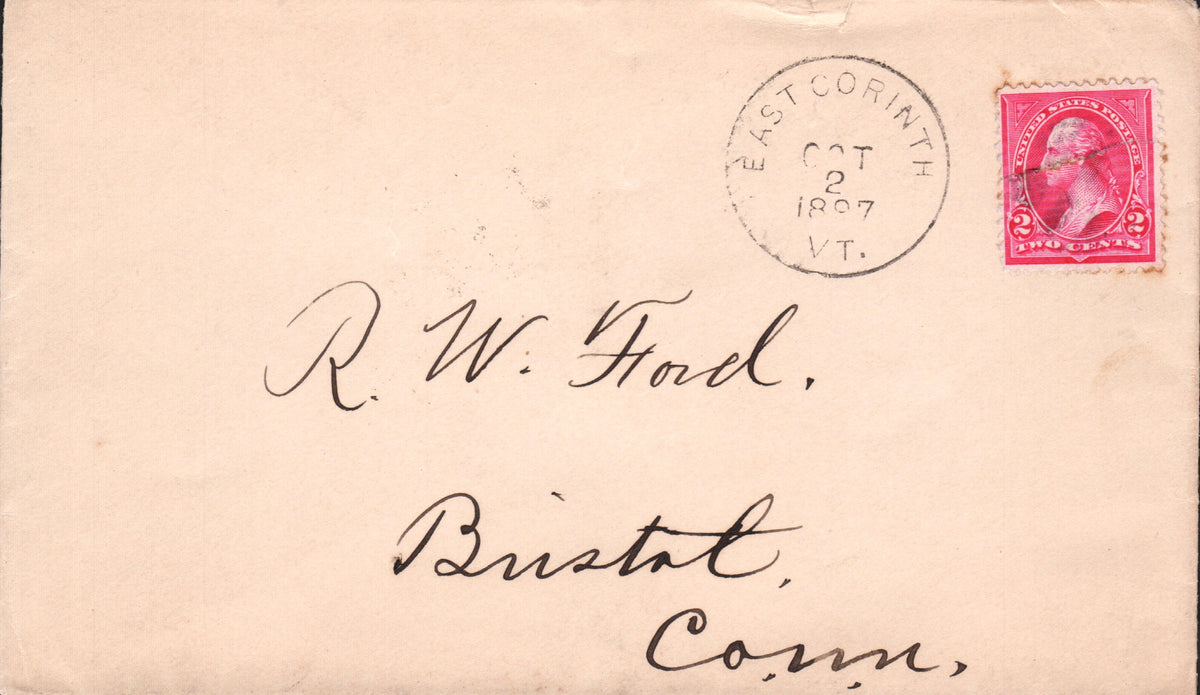 EAST CORINTH
OCT
2
1897
VT.
UNITED STATES POSTAGE
2 2
TWO CENTS
R. W. Ford.
Bristol,
Conn.